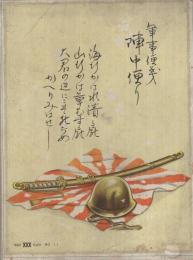 陣中便り
海行かば水漬く屍
山行かば草むす屍
大君の辺にこそ死なめ
かへりみはせじ
XXX